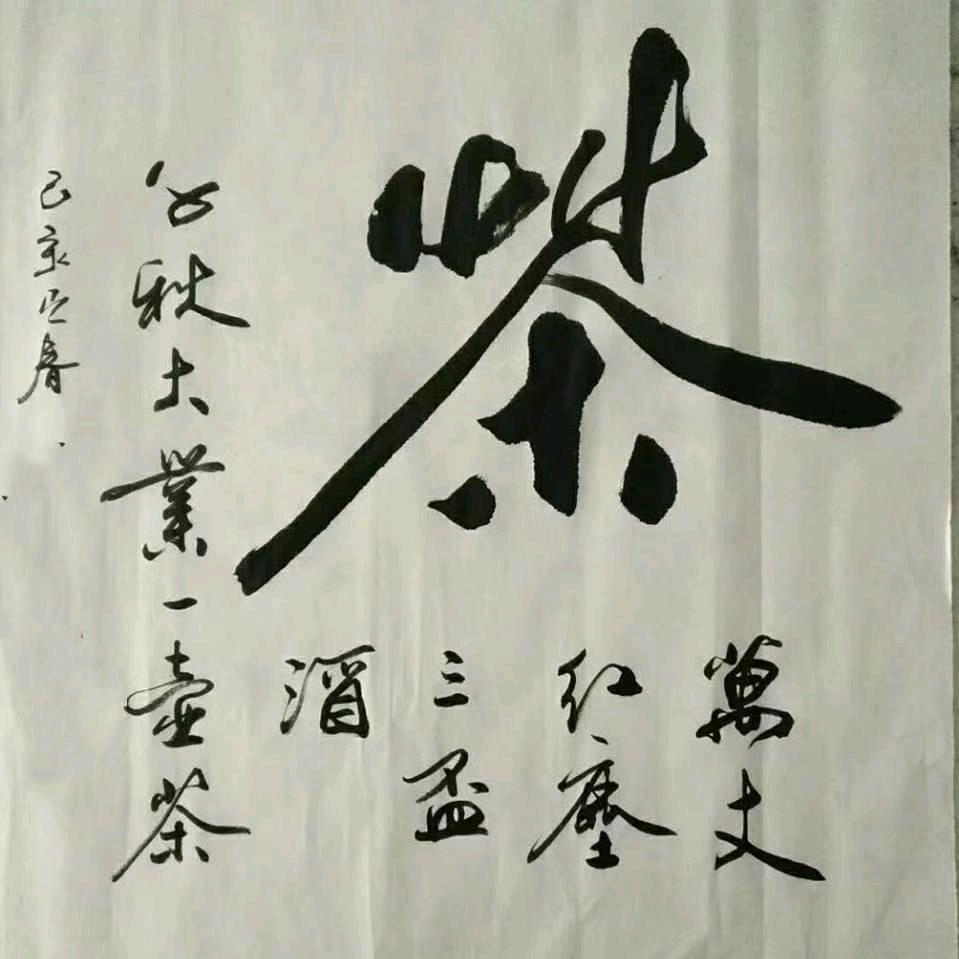 茶
萬丈
红塵
三盃
酒
千秋大業一壺茶
己亥之春